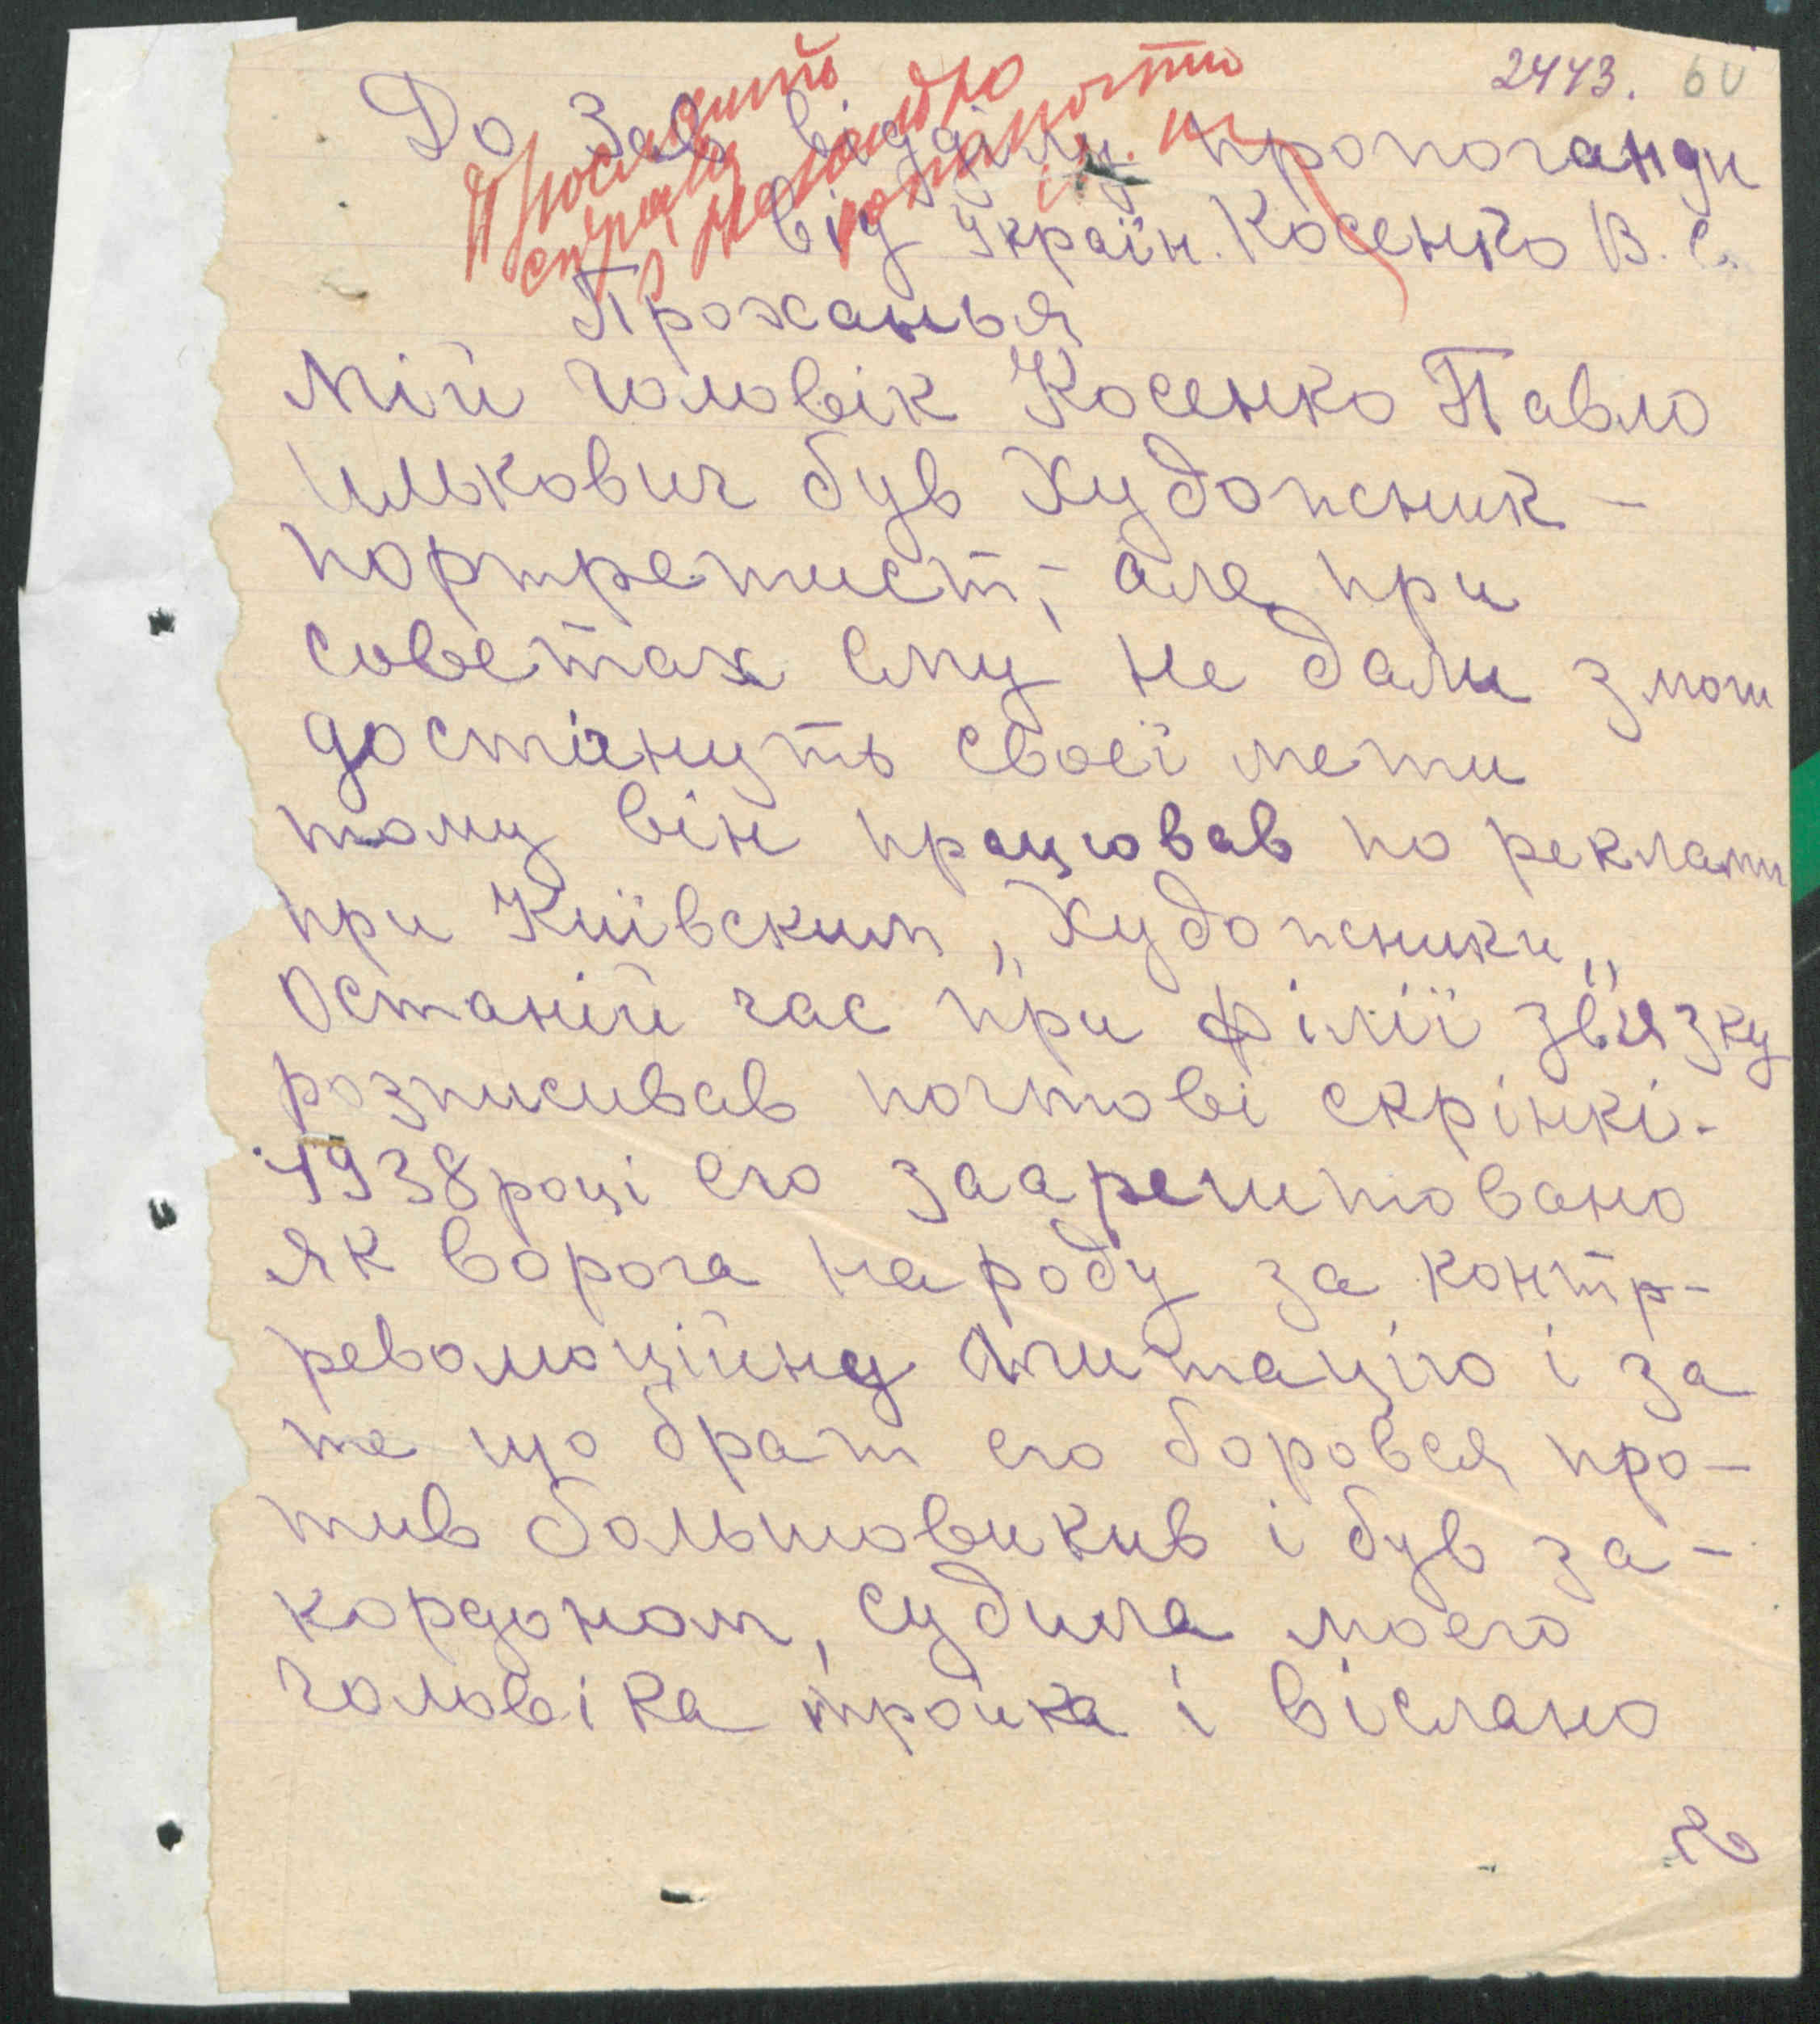 2443. 60
До Зав відділу пропоганди
від Україн. Косенко В. С.
Проханья
Мій чоловік Косенко Павло
Илькович був Художник -
портретист, - але при
советах ему не дали змоги
достигнуть своеї мети
тому він працював по реклами
при Київским „Художники„
Останій час при філії звязку
розписивав почтові скрінкі.
1938 році его заарештовано
як ворога народу за контр-
революційну агитацію і за
те що брат его боровся про-
тив большовиків і був за-
кордоном, судила моего
чоловіка тройка і віслано